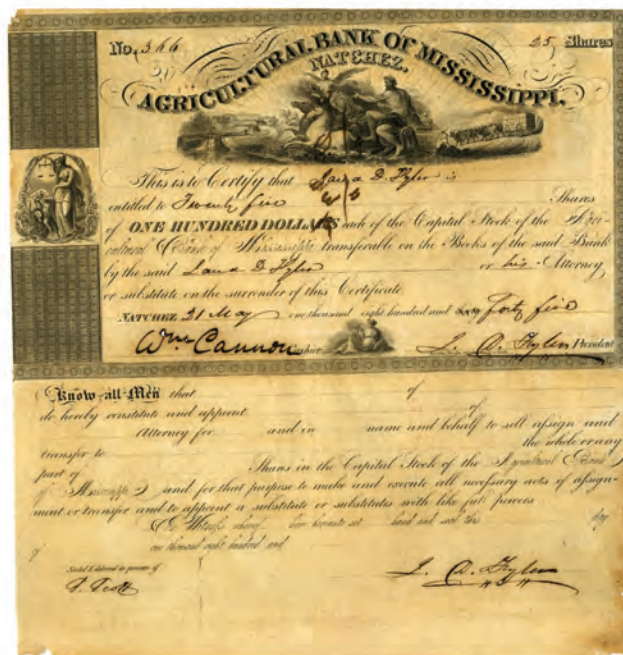 No, 366 25 Shares
AGRICULTURAL BANK OF MISSISSIPPI.
NATCHEZ.
This is to Certify that D. is
entitled to Twenty five Shares
of ONE HUNDRED DOLLARS each of the Capital Stock of the Agri-
cultural Bank of Mississippi transferable on the Books of the said Bank
by the said D or his Attorney
or substitute on the surrender of this Certificate
NATCHEZ 31 May one thousand eight hundred and forty five
Wm Cannon Cashier President
Know all Men that of
do hereby constitute and appoint of
Attorney for and in name and behalf to sell assign and
transfer to the whole or any
part of Shares in the Capital Stock of the Agricultural Bank
of Mississippi and for that purpose to make and execute all necessary acts of assign-
ment or transfer and to appoint a substitute or substitutes with like full powers
In Witness whereof have hereunto set hand and seal this day
of one thousand eight hundred and
Sealed & delivered in presence of
Scott